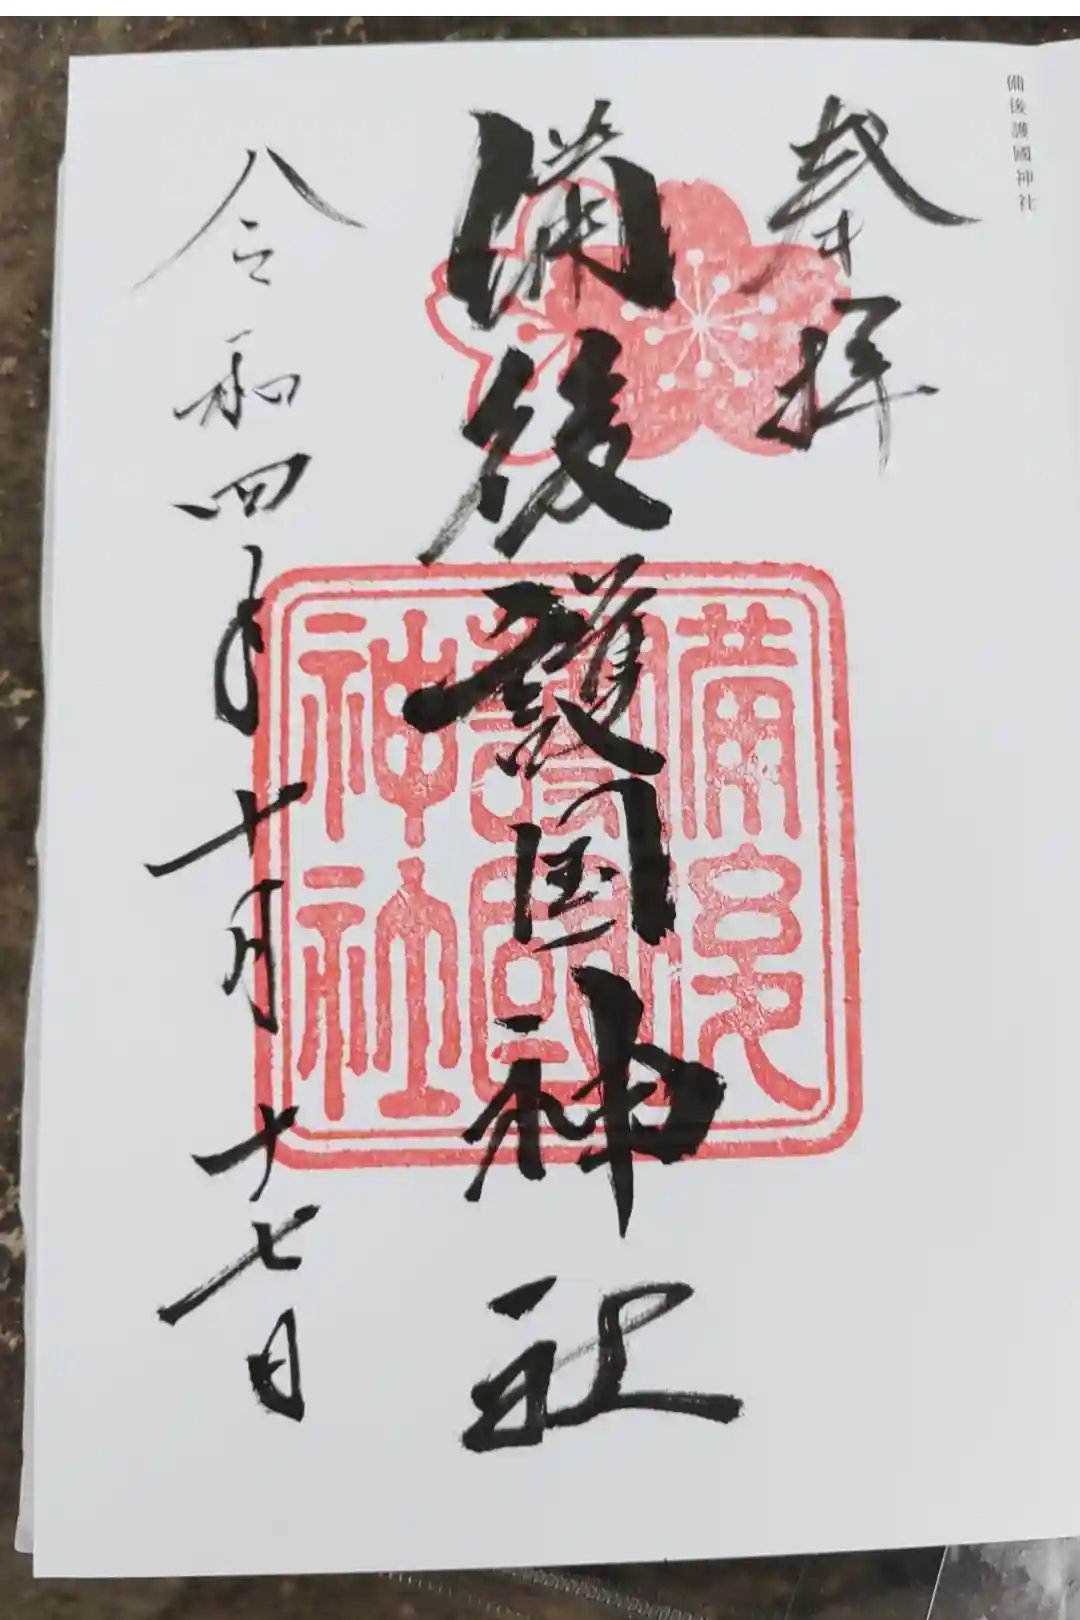 備後護國神社
奉拝
備後護国神社
備後
護國
神社
令和四年十月十七日